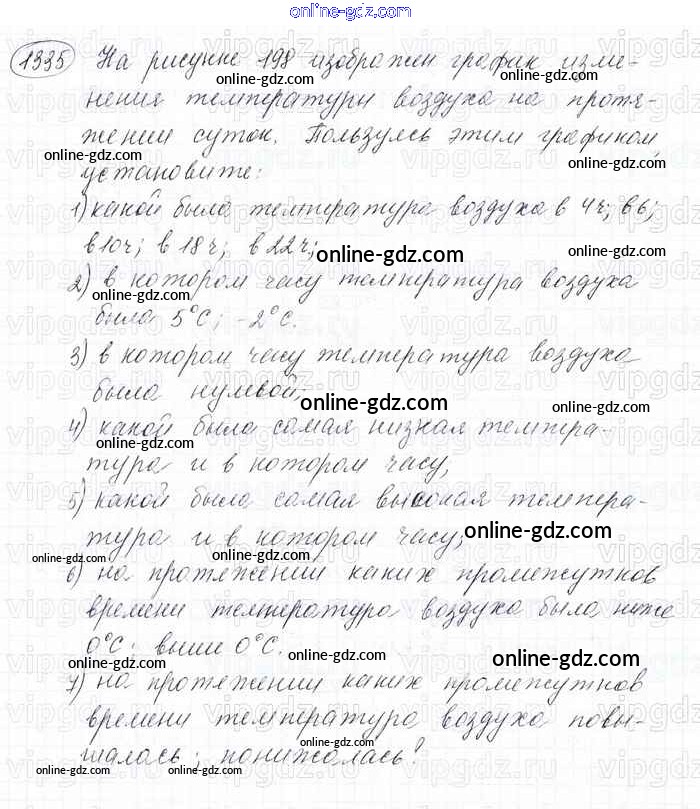 online-gdz.com
1335 На рисунке 198 изображен график изме-
online-gdz.com
нения температуры воздуха на протя-
online-gdz.com
жении суток. Пользуясь этим графиком,
online-gdz.com online-gdz.com
установите:
1) какой была температура воздуха в 4ч; в 6;
в 10ч; в 18ч; в 22ч; online-gdz.com
2) в котором часу температура воздуха
online-gdz.com
была 5°С; -2°С.
online-gdz.com
3) в котором часу температура воздуха
была нулевой,
online-gdz.com
4) какой была самая низкая темпера-
тура и в котором часу;
5) какой была самая высокая темпера-
тура и в котором часу; online-gdz.com
online-gdz.com online-gdz.com
6) на протяжении каких промежутков
времени температура воздуха была ниже
online-gdz.com online-gdz.com
0°С; выше 0°С.
online-gdz.com online-gdz.com
7) на протяжении каких промежутков
времени температура воздуха повы-
online-gdz.com
шалась; понижалась?
online-gdz.com online-gdz.com
online-gdz.com